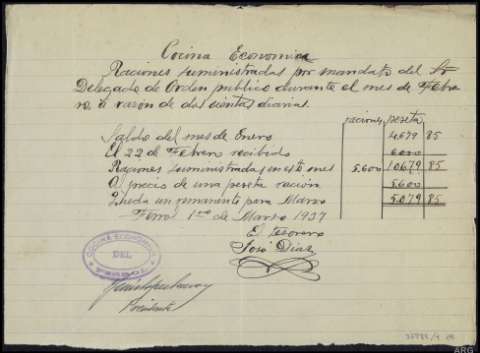 Cocina Economica
Raciones suministradas por mandato del Sr
Delegado de Orden publico durante el mes de Febre
ro a razón de doscientas diarias.
raciones peseta
Saldo del mes de Enero 4679 85
El 22 de Febrero recibido 6000
Raciones suministradas en este mes 5.600 10679 85
Al precio de una peseta ración 5.600
Queda un remanente para Marzo 5.079 85
Ferrol 1º de Marzo 1937
El tesorero
José Diaz
COCINA ECONOMICA
DEL
FERROL
Presidente
ARG